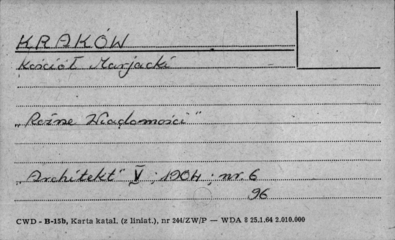 KRAKÓW
Kościół Marjacki
„Rożne Wiadomości"
„Architekt" V ; 1904 ; nr. 6
96
CWD - B-15b, Karta katal. (z liniat.), nr 244/ZW/P — WDA 8 25.1.64 2.010.000